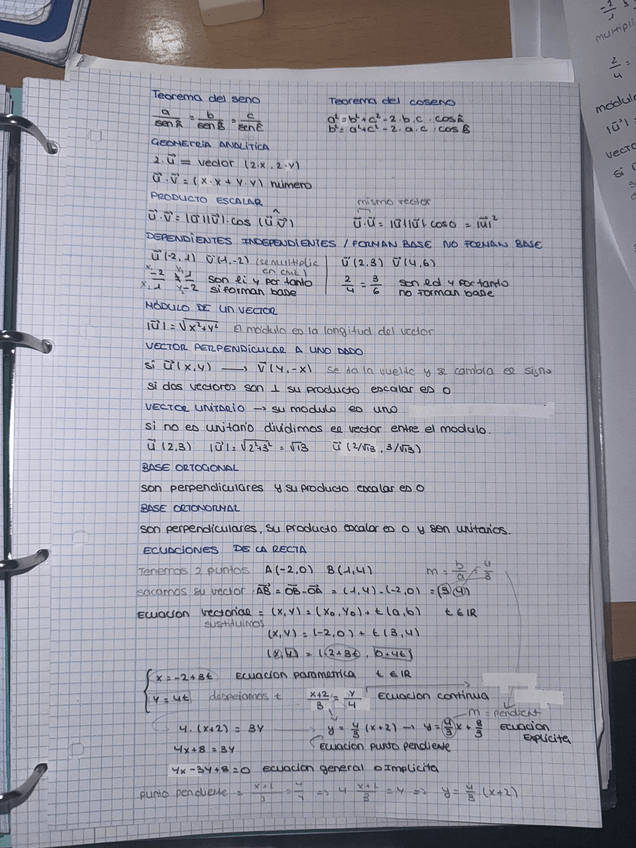 Teorema del seno
a/senÂ = b/senB̂ = c/senĈ
Teorema del coseno
a² = b² + c² - 2·b·c · cosÂ
b² = a² + c² - 2·a·c · cosB̂
GEOMETRÍA ANALÍTICA
2·u⃗ = vector (2·x, 2·y)
u⃗·v⃗ = (x·x + y·y) número
PRODUCTO ESCALAR
u⃗·v⃗ = |u⃗||v⃗|·cos (u⃗ v⃗)
mismo vector
u⃗·u⃗ = |u⃗||u⃗| cos0 = |u⃗|²
DEPENDIENTES INDEPENDIENTES / FORMAN BASE NO FORMAN BASE
u⃗(-2,1) v⃗(1,-2) (se multiplic
en cruz)
son li y por tanto
si forman base
u⃗(2,3) v⃗(4,6)
2/4 = 3/6 son ld y por tanto
no forman base
MÓDULO DE UN VECTOR
|u⃗| = √x²+y² El modulo es la longitud del vector
VECTOR PERPENDICULAR A UNO DADO
si u⃗(x,y) ⟶ v⃗(y,-x) se da la vuelta y se cambia el signo
si dos vectores son ⊥ su producto escalar es 0
VECTOR UNITARIO → su modulo es uno
si no es unitario dividimos el vector entre el modulo.
u⃗(2,3) |u⃗| = √2²+3² = √13 u⃗(2/√13, 3/√13)
BASE ORTOGONAL
son perpendiculares y su producto escalar es 0
BASE ORTONORMAL
son perpendiculares, su producto escalar es 0 y son unitarios.
ECUACIONES DE LA RECTA
Tenemos 2 puntos A(-2,0) B(1,4) m = b/a = 4/3
sacamos su vector AB⃗ = OB⃗ - OA⃗ = (1,4) - (-2,0) = (3,4)
Ecuacion vectorial = (x,y) = (x₀,y₀) + t(a,b) t∈IR
sustituimos
(x,y) = (-2,0) + t(3,4)
(x,y) = (-2+3t, 0+4t)
x = -2+3t Ecuacion parametrica t∈IR
y = 4t despejamos t x+2/3 = y/4 Ecuacion continua
m = pendient
4·(x+2) = 3y y = 4/3 (x+2) → y = 4/3 x + 8/3 Ecuacion
Explicita
4x+8 = 3y Ecuacion punto pendiente
4x-3y+8=0 ecuacion general o Implicita
punto pendiente = x+2/3 = y/4 ⇒ 4 x+2/3 = y ⇒ y = 4/3·(x+2)